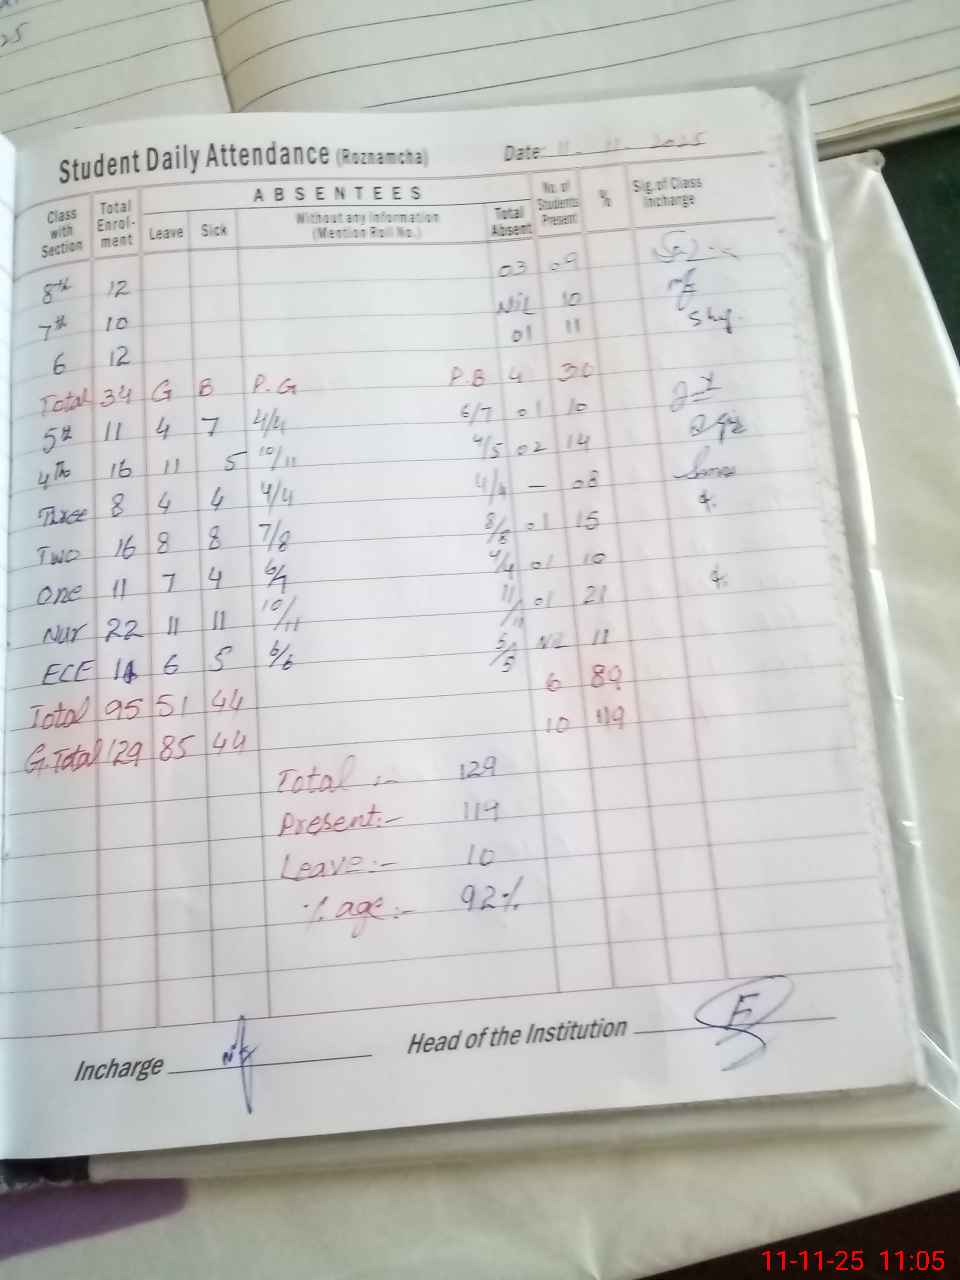 25
Student Daily Attendance (Roznamcha) Date: 11-11-2025
Class with Section Total Enrol-ment ABSENTEES No. of Students Present % Sig. of Class Incharge
Leave Sick Without any Information (Mention Roll No.) Total Absent
8th 12 03 09
7th 10 Nil 10
6 12 01 11
Total 34 G B P.G P.B 4 30
5th 11 4 7 4/4 6/7 01 10
4Th 16 11 5 10/11 4/5 02 14
Three 8 4 4 4/4 4/4 - 08
Two 16 8 8 7/8 8/8 01 15
One 11 7 4 6/7 4/4 01 10
Nur 22 11 11 10/11 11/11 01 21
ECE 11 6 5 6/6 5/5 Nil 11
Total 95 51 44 6 89
G.Total 129 85 44 10 119
Total :- 129
Present:- 119
Leave:- 10
% age:- 92%
Incharge Head of the Institution
11-11-25 11:05